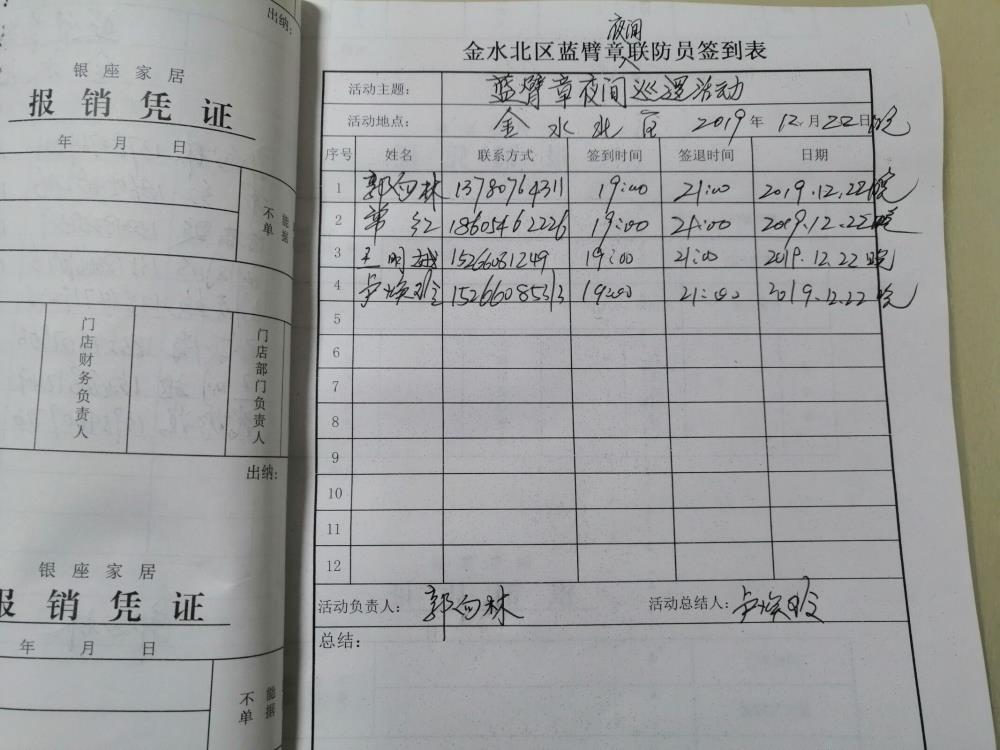 出纳:
银座家居
报销凭证
年 月 日
不 能
单 据
门店财务负责人
门店部门负责人
出纳:
银座家居
报销凭证
年 月 日
不 能
单 据
夜间
金水北区蓝臂章联防员签到表
活动主题: 蓝臂章夜间巡逻活动
活动地点: 金水北区 2019年12月22日晚
序号 姓名 联系方式 签到时间 签退时间 日期
1 郭向林 13780764311 19:00 21:00 2019.12.22晚
2 红 18605462226 19:00 21:00 2019.12.22晚
3 王明 15266081249 19:00 21:00 2019.12.22晚
4 15266085313 19:00 21:00 2019.12.22晚
5
6
7
8
9
10
11
12
活动负责人: 郭向林 活动总结人:
总结: